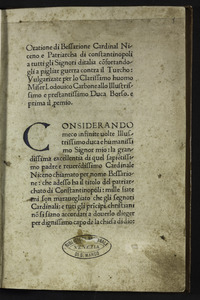 Oratione di Bessarione Cardinal Ni
ceno e Patriarcha di constantinopoli
a tutti gli Signori ditalia cōfortando
gli a pigliar guerra contra il Turcho:
Vulgarizate per lo Clarissimo huomo
Miser Lodouico Carbone allo Illustris
simo e prestantissimo Duca Borso. e
prima il pemio.
CONSIDERANDO
meco infinite uolte Illus
trissimo duca e humanissi
mo Signor mio: la gran
dissima excellentia di quel sapientissi
mo padre e reuerdissimo Cardinale
Niceno chiamato per nome Bessario
ne: che adesso ha il titolo del patriar
chato di Constantinopoli: mille fiate
mi son marauegliato che gli segnori
Cardinali e tutti gli pricipi christiani
nō si siano accordati a douerlo elleger
per dignissimo capo de la chiesa di dio:
VENEZIA